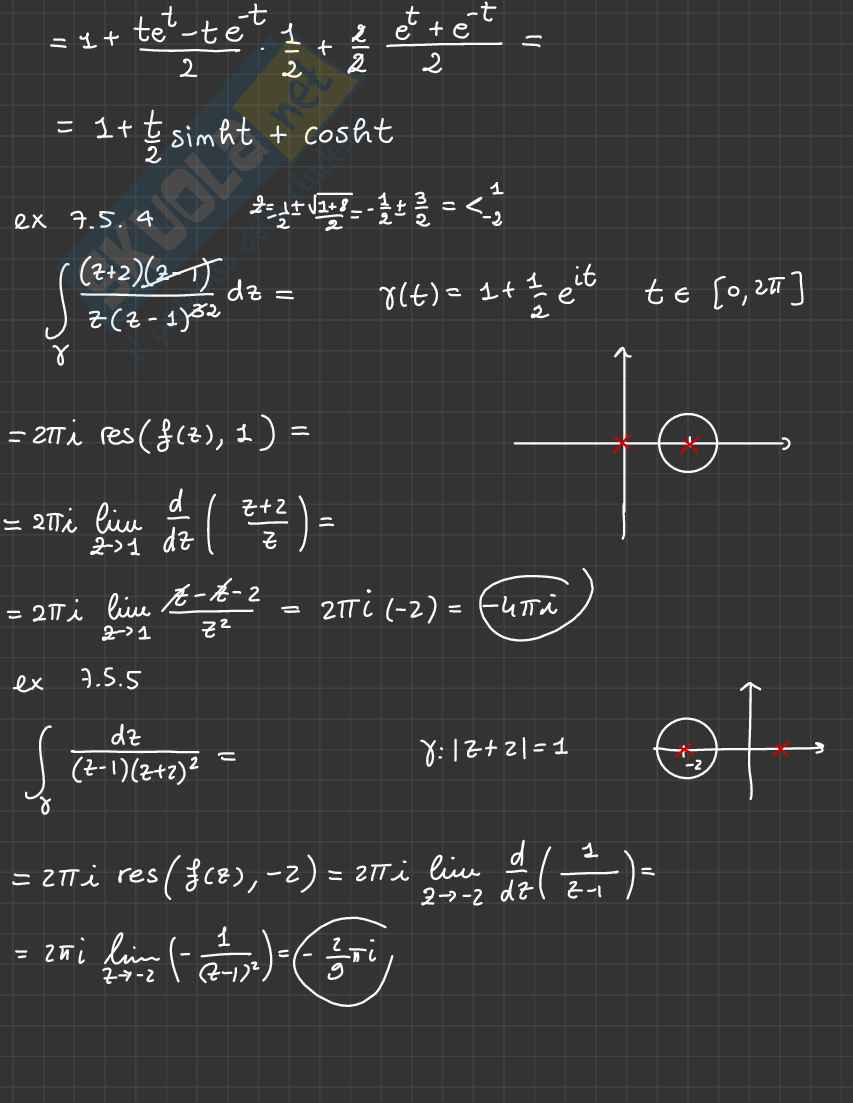 = 1 + (te^t - te^-t)/2 · 1/2 + 2/2 (e^t + e^-t)/2 =
= 1 + t/2 sinht + cosht
ex 7.5.4
z = -1/2 ± √(1+8)/2 = -1/2 ± 3/2 = < 1 -2
∫γ (z+2)(z-1) / z(z-1)^32 dz = γ(t) = 1 + 1/2 e^it t ∈ [0, 2π]
= 2πi res(f(z), 1) =
= 2πi lim z→1 d/dz ( (z+2)/z ) =
= 2πi lim z→1 (z - z - 2)/z² = 2πi (-2) = -4πi
ex 7.5.5
∫γ dz / (z-1)(z+2)² = γ: |z+2| = 1
-2
= 2πi res(f(z), -2) = 2πi lim z→-2 d/dz ( 1/(z-1) ) =
= 2πi lim z→-2 ( - 1/(z-1)² ) = - 2/9 πi
SKUOLA.net